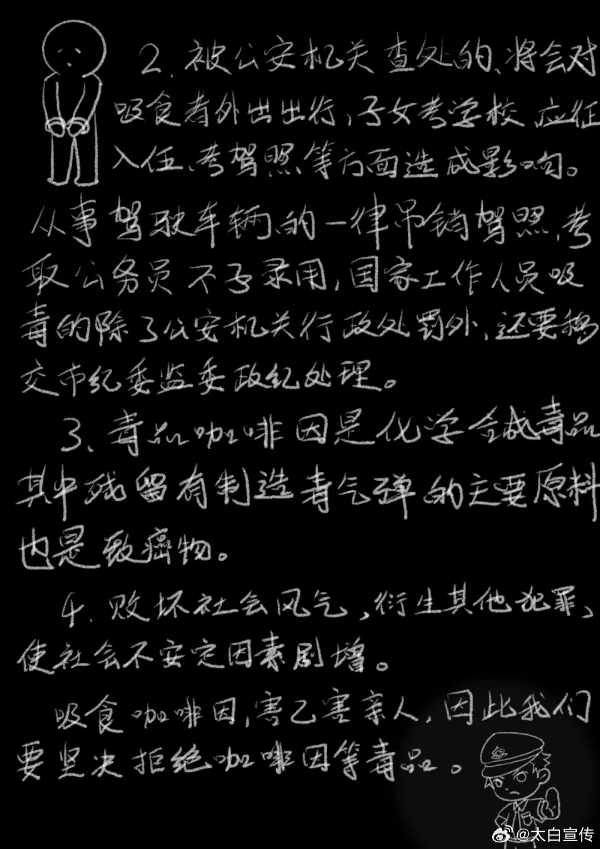 2、被公安机关查处的、将会对
吸食者外出出行,子女考学校、应征
入伍、考驾照等方面造成影响。
从事驾驶车辆的一律吊销驾照,考
取公务员不予录用,国家工作人员吸
毒的除了公安机关行政处罚外,还要移
交市纪委监委政纪处理。
3、毒品咖啡因是化学合成毒品
其中残留有制造毒气弹的主要原料
也是致癌物。
4、败坏社会风气,衍生其他犯罪,
使社会不安定因素剧增。
吸食咖啡因,害己害亲人,因此我们
要坚决拒绝咖啡因等毒品。
@太白宣传